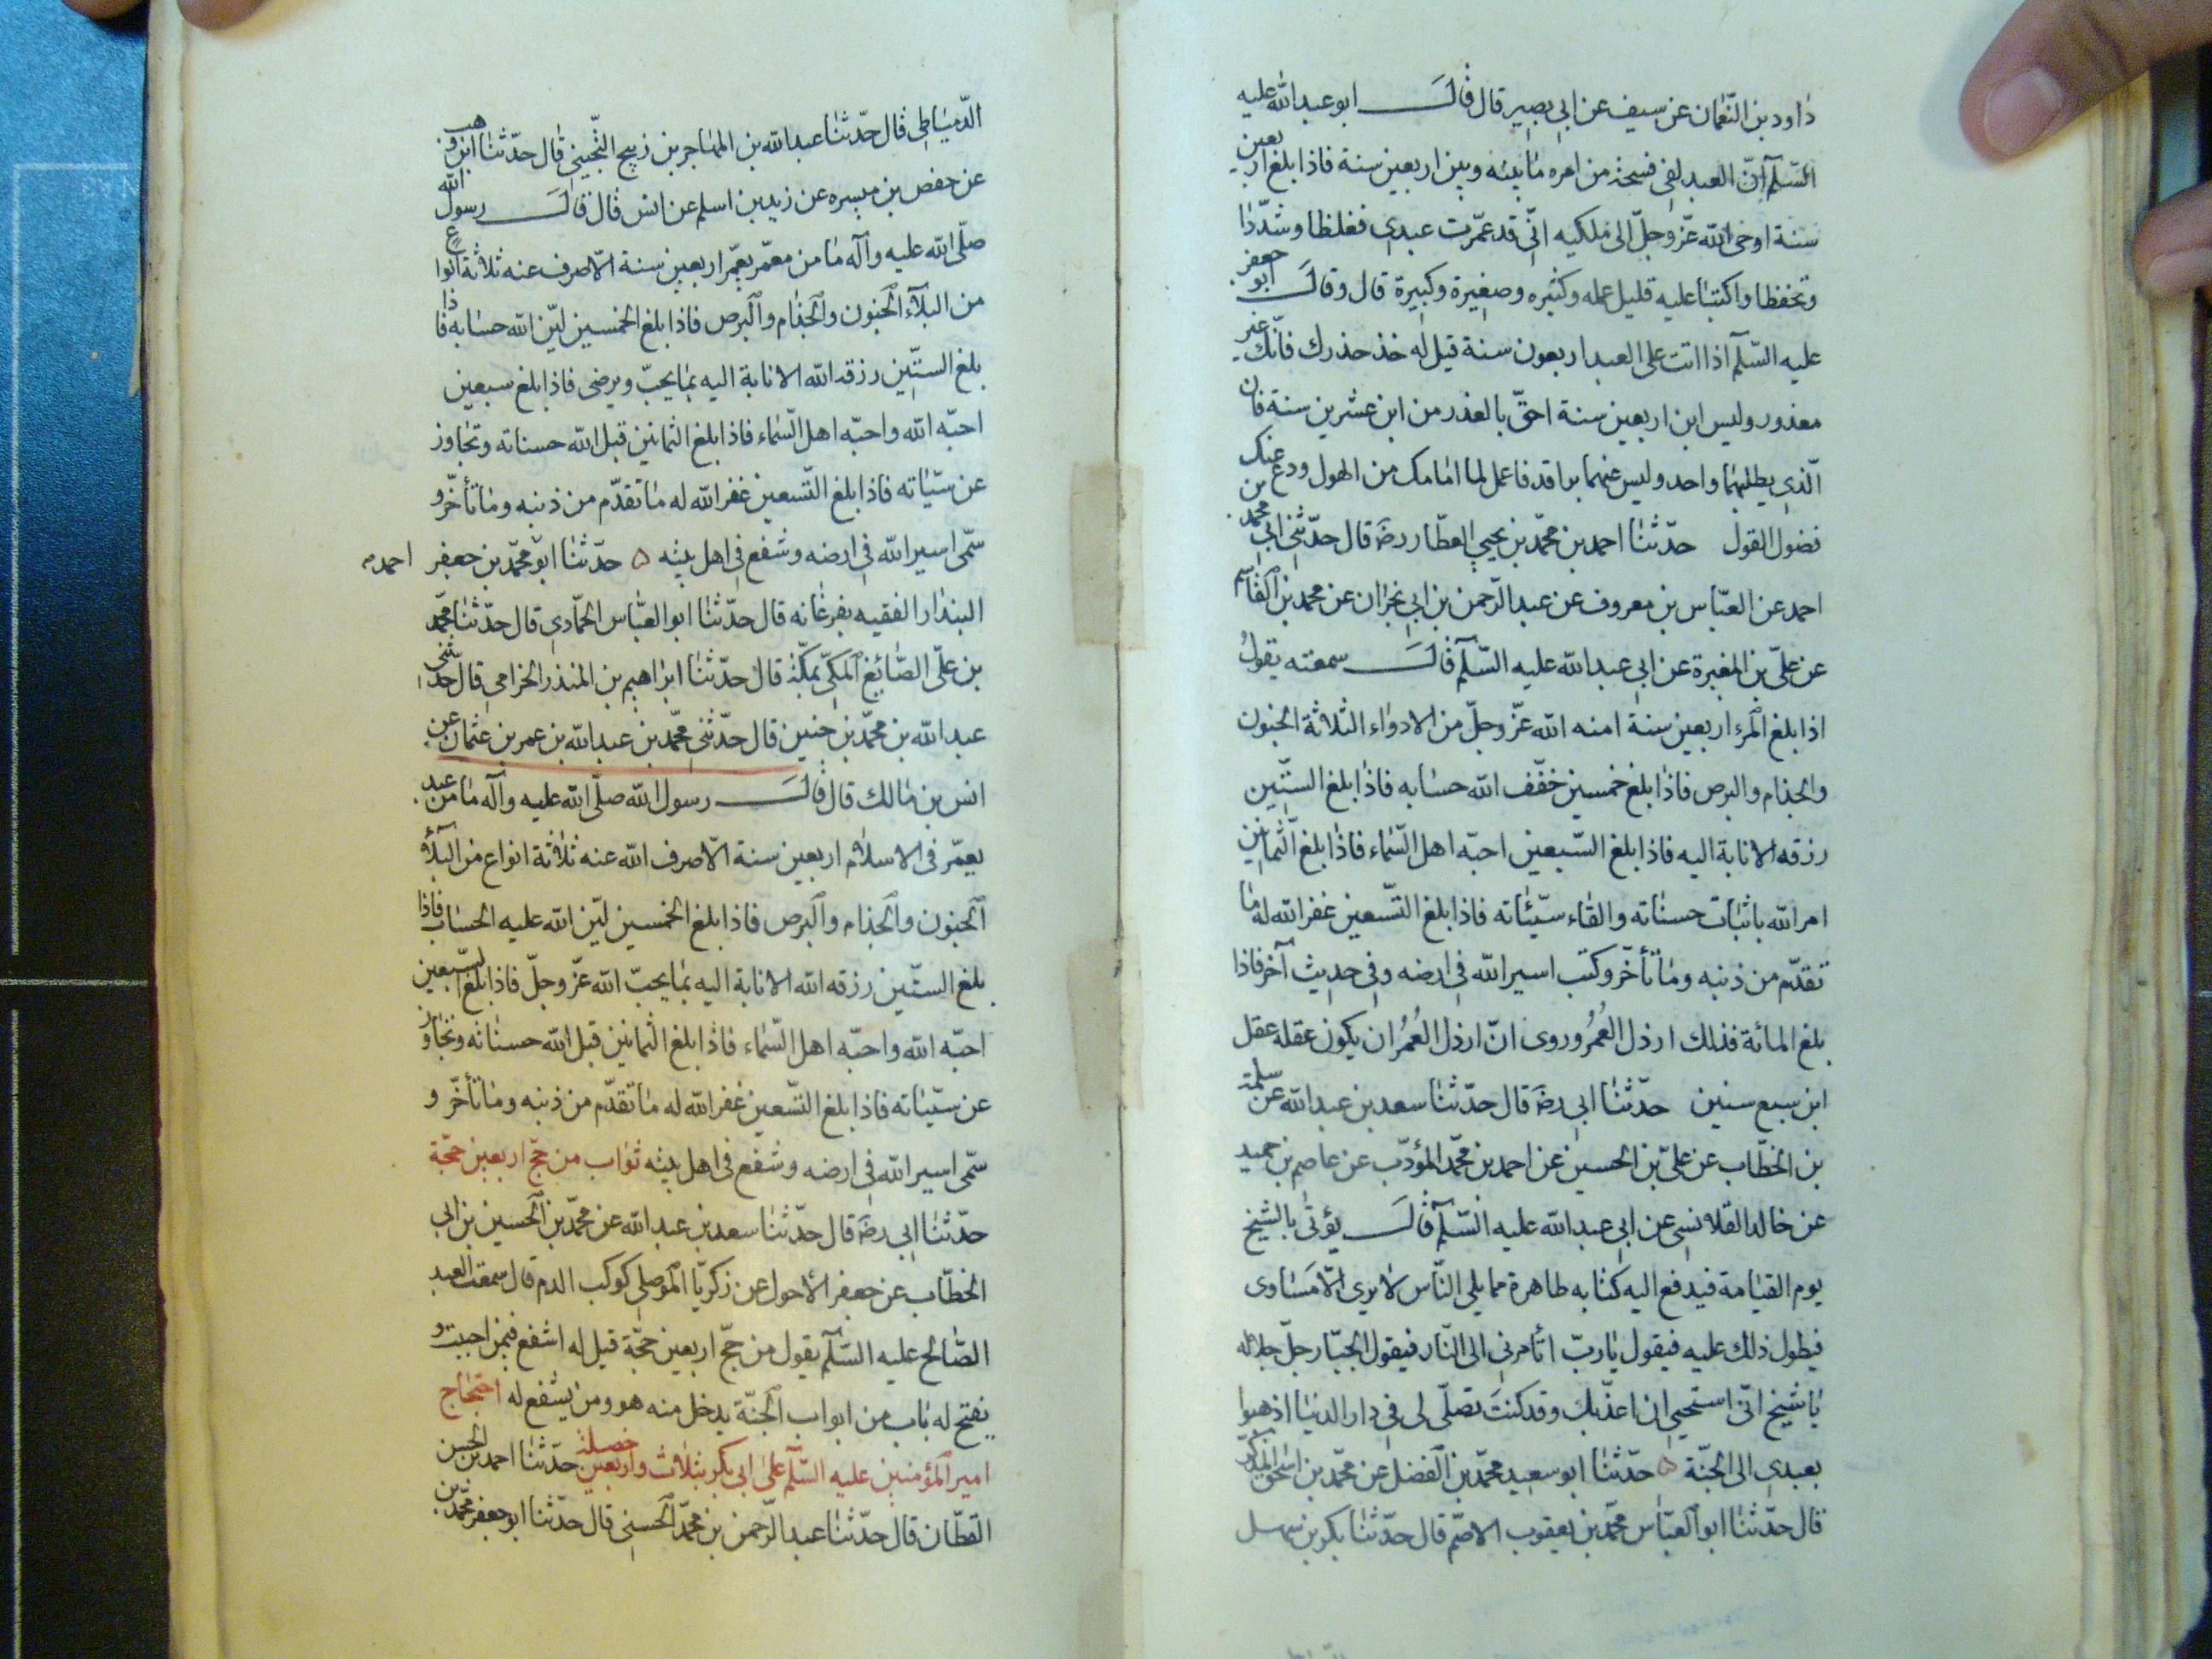 داود بن النّعمان عن سيف عن ابى بصير قال قال ابو عبد الله عليه
السّلم انّ العبد لفى فسحة من امره ما بينه وبين اربعين سنة فاذا بلغ اربعين
سنة اوحى الله عزّ وجلّ الى ملكيه انّى قد عمّرت عبدى فغلظا وشدّدا
وتحفظا واكتبا عليه قليل عمله وكثيره وصغيرة وكبيرة قال وقال ابو جعفر
عليه السّلم اذا اتت على العبد اربعون سنة قيل له خذ حذرك فانّك غير
معذور وليس ابن اربعين سنة احقّ بالعذر من ابن عشرين سنة فان
الّذى يطلبهما واحد وليس عنهما براقد فاعمل لما امامك من الهول ودع عنك
فضول القول حدّثنا احمد بن محمّد بن يحيى العطّار رضه قال حدّثنى ابى محمد بن
احمد عن العبّاس بن معروف عن عبد الرّحمن بن ابى نجران عن محمد بن القاسم
عن علىّ بن المغيرة عن ابى عبد الله عليه السّلم قال سمعته يقولُ
اذا بلغ المرء اربعين سنة امنه الله عزّ وجلّ من الادواء الثلاثة الجنون
والجذام والبرص فاذا بلغ خمسين خفّف الله حسابه فاذا بلغ السّتّين
رزقه الانابة اليه فاذا بلغ السّبعين احبّه اهل السّماء فاذا بلغ الثّمانين
امر الله باثبات حسناته والقاء سيّئاته فاذا بلغ التّسعين غفر الله له ما
تقدّم من ذنبه وما تأخّر وكتب اسير الله فى ارضه وفى حديث آخر فاذا
بلغ المائة فذلك ارذل العُمُر وروى انّ ارذل العُمُر ان يكون عقله عقل
ابن سبع سنين حدّثنا ابى رضه قال حدّثنا سعد بن عبد الله عن سلمة
بن الخطّاب عن علىّ بن الحسين عن احمد بن محمّد المؤدّب عن عاصم بن حميد
عن خالد القلانسى عن ابى عبد الله عليه السّلم قال يؤتى بالشّيخ
يوم القيامة فيدفع اليه كتابه ظاهرة مما يلى النّاس لا يرى الّا مساوى
فيطول ذلك عليه فيقول يا ربّ اتأمرنى الى النّار فيقول الجبّار جلّ جلاله
يا شيخ انّى استحيى ان اعذّبك وقد كنتَ تصلّى لى فى دار الدنيا اذهبوا
بعبدى الى الجنّة ه حدّثنا ابو سعيد محمّد بن الفضل عن محمّد بن اسحق المذكر
قال حدّثنا ابو العبّاس محمّد بن يعقوب الاصّم قال حدّثنا بكر بن سهل
الدّمياطى قال حدّثنا عبد الله بن المهاجر بن زبيح التّجيبى قال حدّثنا ابن وهب
عن حفص بن ميسره عن زيد بن اسلم عن انس قال قال رسول الله
صلّى الله عليه وآله ما من معمّر يعمّر اربعين سنة الّا صرف عنه ثلاثة انواع
من البلآء الجنون والجذام والبرص فاذا بلغ الخمسين ليّن الله حسابه فاذا
بلغ السّتّين رزقه الله الانابة اليه بما يحبّ ويرضى فاذا بلغ سبعين
احبّه الله واحبّه اهل السّماء فاذا بلغ الثمانين قبل الله حسناته وتجاوز
عن سيّاته فاذا بلغ التّسعين غفر الله له ما تقدّم من ذنبه وما تأخّر و
سمّى اسير الله فى ارضه وشفع فى اهل بيته ه حدّثنا ابو محمّد بن جعفر احمد
البندار الفقيه بفرغانه قال حدّثنا ابو العبّاس الحمّادى قال حدّثنا محمّد
بن علىّ الصّائغ المكىّ بمكّة قال حدّثنا ابراهيم بن المنذر الخزامى قال حدّثنى
عبد الله بن محمّد بن حنين قال حدّثنى محمّد بن عبد الله بن عمر بن عثمان عن
انس بن مالك قال قال رسول الله صلّى الله عليه وآله ما من عبد
يعمّر فى الاسلام اربعين سنة الّا صرف الله عنه ثلاثة انواع من البلآء
الجنون والجذام والبرص فاذا بلغ الخمسين ليّن الله عليه الحساب فاذا
بلغ السّتّين رزقه الله الانابة اليه بما يحبّ الله عزّ وجلّ فاذا بلغ السّبعين
احبّه الله واحبّه اهل السّماء فاذا بلغ الثمانين قبل الله حسناته وتجاوز
عن سيّئاته فاذا بلغ التّسعين غفر الله له ما تقدّم من ذنبه وما تأخّر و
سمّى اسير الله فى ارضه وشفع فى اهل بيته ثواب من حجّ اربعين حجّة
حدّثنا ابى رضه قال حدّثنا سعد بن عبد الله عن محمّد بن الحسين بن ابى
الخطّاب عن جعفر الاحول عن زكريّا الموصلى كوكب الدم قال سمعت العبد
الصّالح عليه السّلم يقول من حجّ اربعين حجّة قيل له اشفع فيمن احببت و
يفتح له باب من ابواب الجنّة يدخل منه هو ومن يشفع له احتجاج
امير المؤمنين عليه السّلم على ابى بكر بثلاث واربعين خصلة حدّثنا احمد بن الحسن
القطّان قال حدّثنا عبد الرّحمن بن محمّد الحسنى قال حدّثنا ابو جعفر محمّد بن